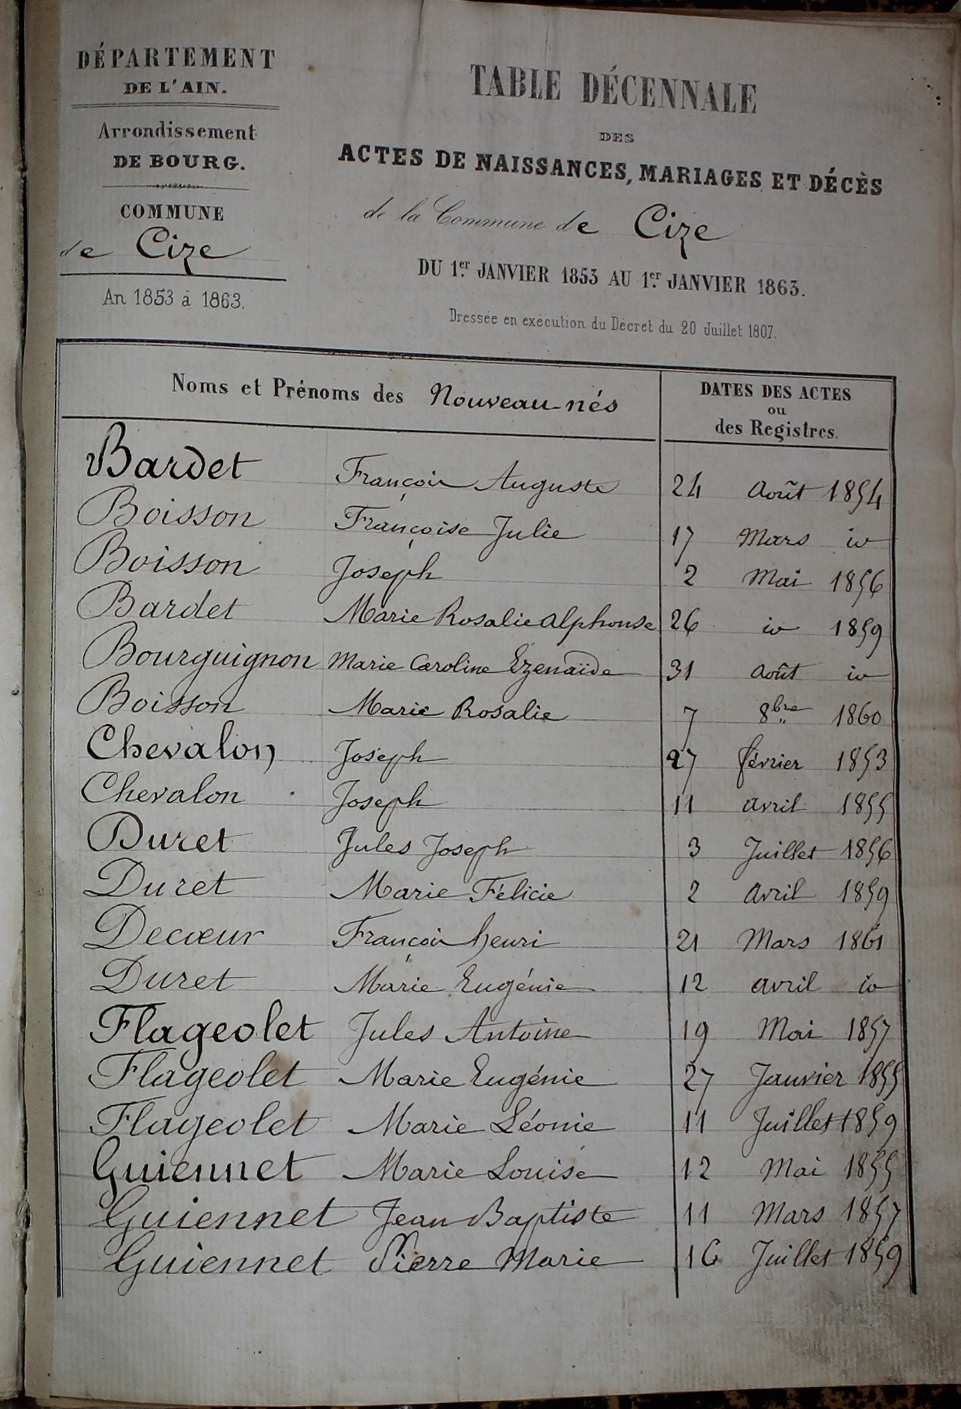 DÉPARTEMENT
DE L'AIN.
Arrondissement
DE BOURG.
COMMUNE
de Cize
An 1853 à 1863.
TABLE DÉCENNALE
DES
ACTES DE NAISSANCES, MARIAGES ET DÉCÈS
de la Commune de Cize
DU 1er JANVIER 1853 AU 1er JANVIER 1863.
Dressée en exécution du Décret du 20 Juillet 1807.
Noms et Prénoms des Nouveau-nés
DATES DES ACTES
ou
des Registres.
Bardet François Auguste 24 Août 1854
Boisson Françoise Julie 17 Mars id
Boisson Joseph 2 Mai 1856
Bardet Marie Rosalie Alphonse 26 id 1859
Bourguignon Marie Caroline Ezenaïde 31 Août id
Boisson Marie Rosalie 7 8bre 1860
Chevalon Joseph 27 février 1853
Chevalon Joseph 11 avril 1855
Duret Jules Joseph 3 Juillet 1856
Duret Marie Félicie 2 Avril 1859
Decœur François henri 21 Mars 1861
Duret Marie Eugénie 12 avril id
Flageolet Jules Antoine 19 Mai 1857
Flageolet Marie Eugénie 27 Janvier 1855
Flageolet Marie Léonie 11 Juillet 1859
Guiennet Marie Louise 12 Mai 1855
Guiennet Jean Baptiste 11 Mars 1857
Guiennet Pierre Marie 16 Juillet 1859